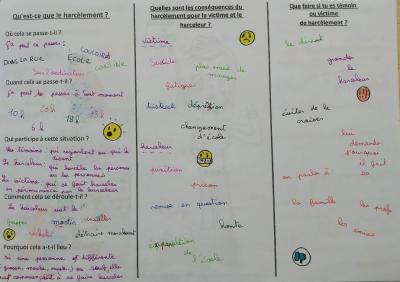 Qu'est-ce que le harcèlement ?
Où cela se passe-t-il ?
ça peut se passer :
COULOIRS
DANS LA RUE
ECOLE
CANTINE
Sur l'ordinateur
Quand cela se passe-t-il ?
ça peut se passer à tout moment
10 h
20 h
13 h
5 h
18 h
Qui participe à cette situation ?
Les témoins : qui regardent ou qui le
disent
Le harceleur : qui harcèle la personne
ou les personnes
La victime : qui se fait harceler
en permanence par le harceleur
Comment cela se déroule-t-il ?
Le harceleur veut le
frapper
insulter
détruire moralement
Pourquoi cela a-t-il lieu ?
si une personne est différente
Quelles sont les conséquences du
harcèlement pour la victime et le
harceleur ?
victime
Suicide
plus envie de
manger
fatigue
dépression
changement
d'École
harceleur
punition
prison
remise en question
honte
de l'école
Que faire si tu es témoin
ou victime
de harcèlement ?
le disent
le
harceleur
éviter de le
croiser
lui
demander
pourquoi
il fait
ça
en parler à
la famille
les profs
les amies